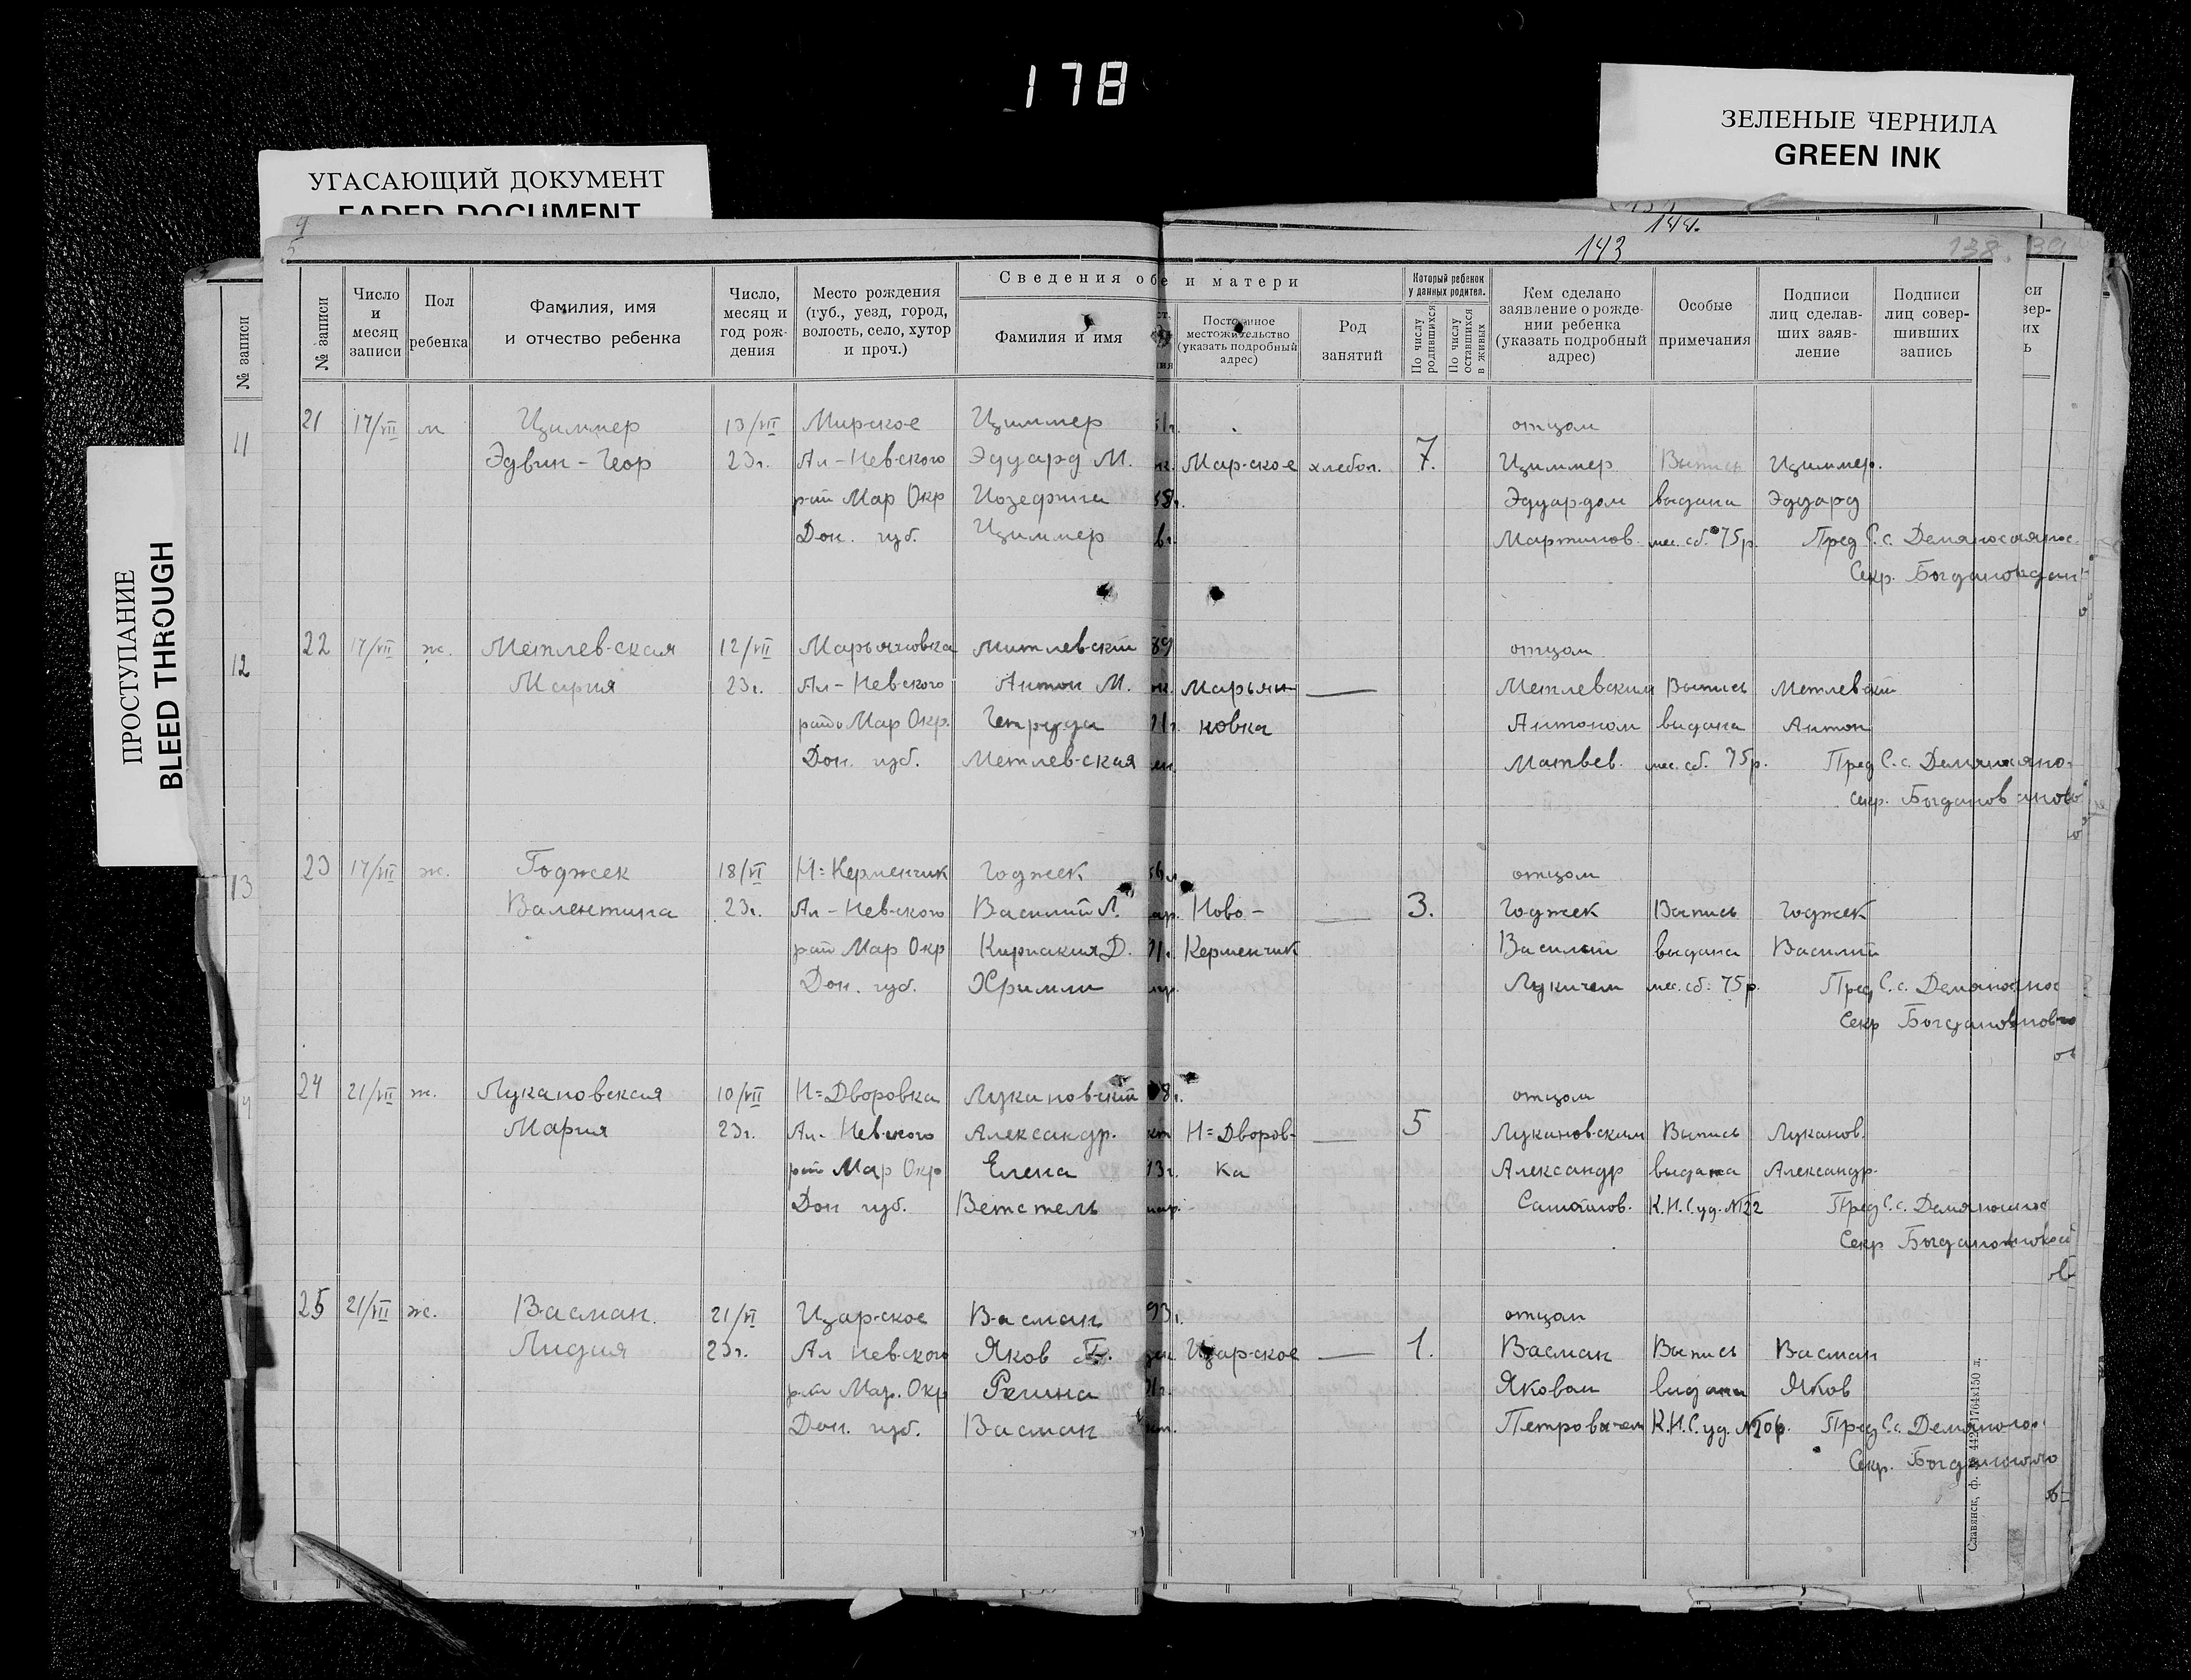 178
УГАСАЮЩИЙ ДОКУМЕНТ
FADED DOCUMENT
ЗЕЛЕНЫЕ ЧЕРНИЛА
GREEN INK
ПРОСТУПАНИЕ
BLEED THROUGH
144.
143
138.
Сведения об и матери
№ записи
№ записи
Число и месяц записи
Пол ребенка
Фамилия, имя и отчество ребенка
Число, месяц и год рождения
Место рождения (губ., уезд, город, волость, село, хутор и проч.)
Фамилия и имя
Постоянное местожительство (указать подробный адрес)
Род занятий
Который ребенок у данных родител.
По числу родившихся
По числу оставшихся в живых
Кем сделано заявление о рождении ребенка (указать подробный адрес)
Особые примечания
Подписи лиц сделавших заявление
Подписи лиц совершивших запись
11
21 17/VII м Циммер 13/VII Мирское Циммер отцом
Эдвин-Геор 23г. Ал-Невского Эдуард М. Мар-ское хлебоп. 7. Циммер Выпись Циммер.
рай Мар Окр Иозефина Эдуардом выдана Эдуард
Дон. губ. Циммер Мартинов. мес. сб. 75р. Пред С.с.
Секр.
12
22 17/VII ж. Метлевская 12/VII Марьяновка Митлевский 89 отцом
Мария 23г. Ал-Невского Антон М. Марьян- Метлевским Выпись Метлевский
Мар Окр. новка Антоном выдана Антон
Дон. губ. Метлевская Матвев. мес. сб. 75р. Пред С.с.
Секр. Богданов
13
23 17/VII ж. Годжек 18/VI Н=Керменчик Годжек отцом
Валентина 23г. Ал-Невского Василий Л. Ново- 3. Годжек Выпись Годжек
рай Мар Окр Кириакия Д. Керменчик Василий выдана Василий
Дон. губ. Хримли Лукичем мес. сб. 75р. Пред С.с.
Секр Богданов
24 21/VII ж. Лукановская 10/VII Н=Дворовка Лукановский отцом
Мария 23г. Ал-Невского Александр. Н=Дворов- 5 Лукановским Выпись Луканов.
рай Мар Окр Елена 13г. ка Александр выдана Александр
Дон губ. Ветстель Самойлов. К.Н.С уд. №22 Пред С.с.
Секр
25 21/VII ж. Васман. 21/VI Царское Васман 93г. отцом
Лидия 23г. Ал Невского Яков Царское 1. Васман Выпись Васман
рай Мар. Окр Регина Яковом выдана Яков
Дон. губ. Васман Петровичем К.Н.С. уд. Пред С.с.
Секр.